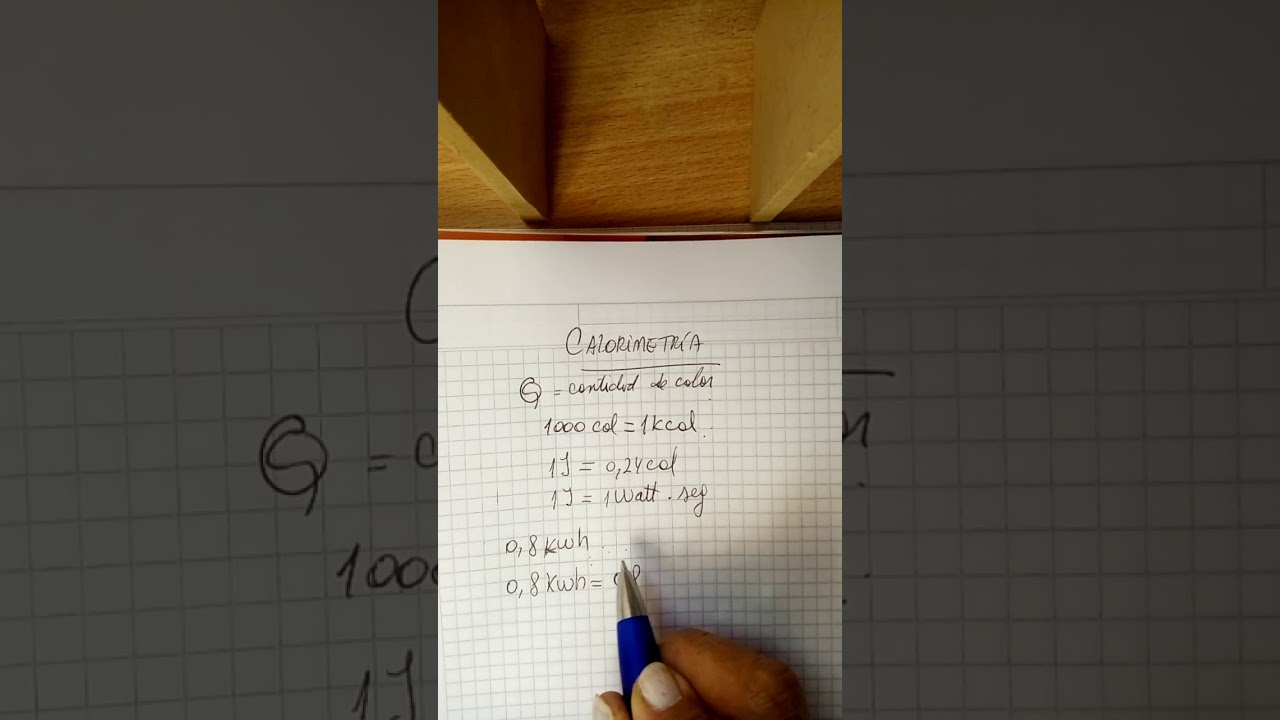 CALORIMETRÍA
Q = cantidad de calor
1000 cal = 1kcal.
1J = 0,24cal
1J = 1Watt.seg
0,8 kwh . . .
0,8 Kwh =